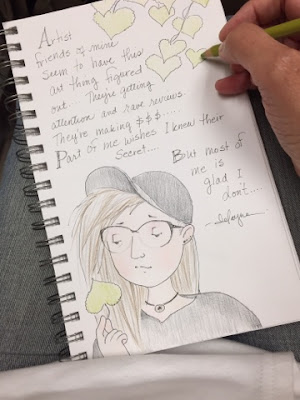 Artist
friends of mine
seem to have this
art thing figured
out... They're getting
attention and rave reviews.
They're making $$$...
Part of me wishes I knew their
secret....
But most of
me is
glad I
don't...